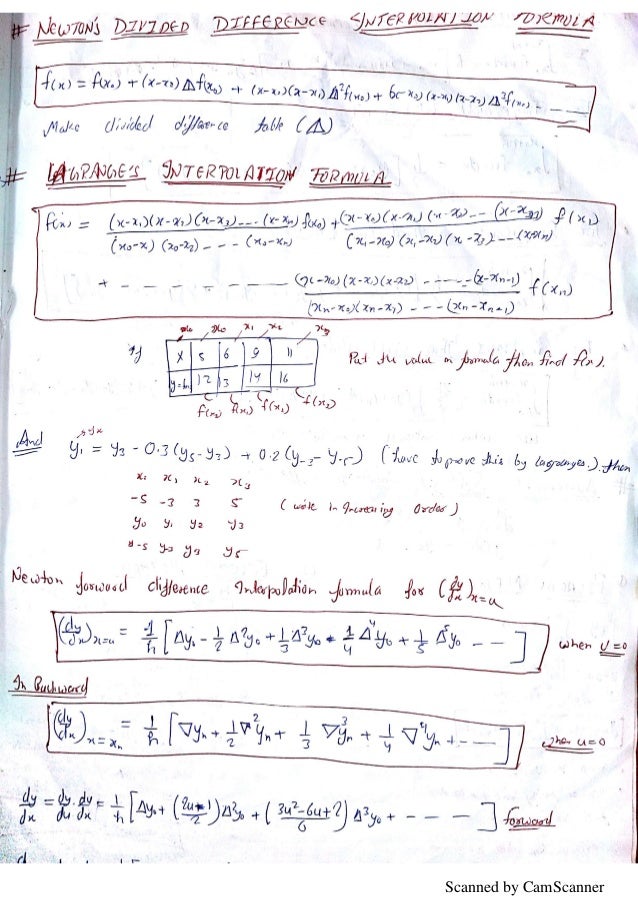 # NEWTON'S DIVIDED DIFFERENCE INTERPOLATION FORMULA
f(x) = f(x₀) + (x-x₀) Δf(x₀) + (x-x₀)(x-x₁) Δ²f(x₀) + (x-x₀)(x-x₁)(x-x₂) Δ³f(x₀) - - -
Make divided difference table (Δ)
# LAGRANGE'S INTERPOLATION FORMULA
f(x) = (x-x₁)(x-x₂)(x-x₃)---(x-xₙ) f(x₀) + (x-x₀)(x-x₂)(x-x₃)-- f(x₁)
(x₀-x₁)(x₀-x₂)---(x₀-xₙ) (x₁-x₀)(x₁-x₂)(x₁-x₃)---(x₁-xₙ)
+ - - - - - - (x-x₀)(x-x₁)(x-x₂) ------(x-xₙ₋₁) f(xₙ)
(xₙ-x₀)(xₙ-x₁) ---(xₙ-xₙ₋₁)
x₀ x₁ x₂ x₃
If x 5 6 9 11 Put the value on formula then find f(x).
12 13 14 16
f(x₀) f(x₁) f(x₂) f(x₃)
And y₁ = y₃ - 0.3 (y₅ - y₋₃) + 0.2 (y₋₃ - y₋₅) (have to prove this by lagranges.) then
x₀ x₁ x₂ x₃
-5 -3 3 5 (write in Increasing Order)
y₀ y₁ y₂ y₃
y₋₅ y₋₃ y₃ y₅
Newton forward difference Interpolation formula for (dy/dx)x=a
(dy/dx)x=a = 1/h [Δy₀ - 1/2 Δ²y₀ + 1/3 Δ³y₀ - 1/4 Δ⁴y₀ + 1/5 Δ⁵y₀ - - -] when u=0
In Backward
(dy/dx)x=xₙ = 1/h [∇yₙ + 1/2 ∇²yₙ + 1/3 ∇³yₙ + 1/4 ∇⁴yₙ + - - -] when u=0
dy/dx = dy/du . du/dx = 1/h [Δy₀ + (2u-1/2) Δ²y₀ + (3u²-6u+2/6) Δ³y₀ + - - - -] forward
Scanned by CamScanner